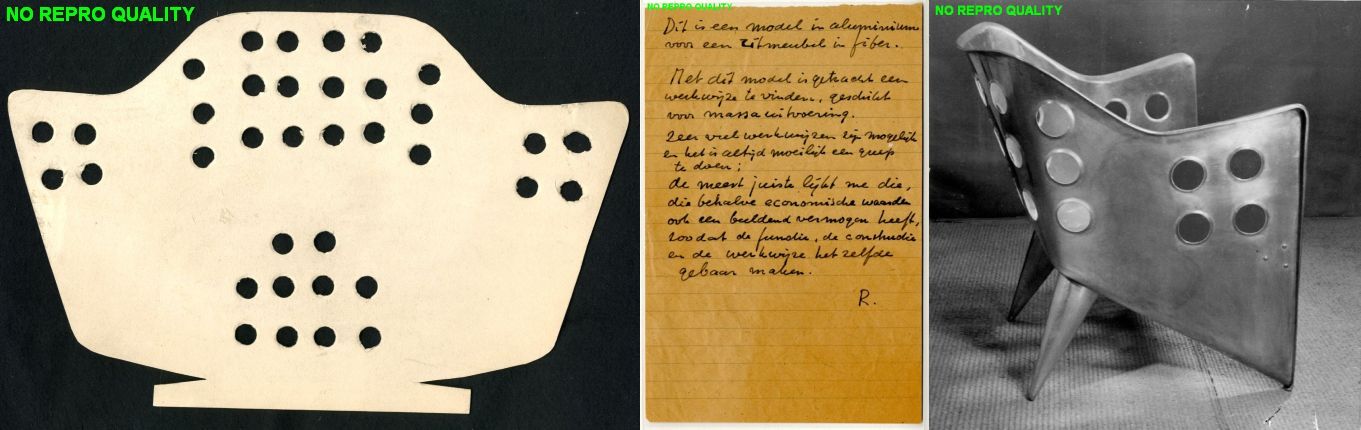 NO REPRO QUALITY
NO REPRO QUALITY
Dit is een model in aluminium
voor een zitmeubel in fiber.
Met dit model is getracht een
werkwijze te vinden, geschikt
voor massauitvoering.
Zeer veel werkwijzen zijn mogelijk
en het is altijd moeilijk een greep
te doen;
de meest juiste lijkt me die,
die behalve economische waarden
ook een beeldend vermogen heeft,
zoodat de functie, de constructie
en de werkwijze het zelfde
gebaar maken.
R.
NO REPRO QUALITY